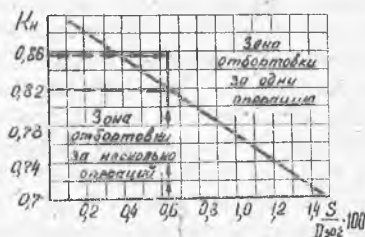 Kн
0,86
0,82
0,78
0,74
0,7
Зона
отбортовки
за одни
операцию
Зона
отбортовки
за несколько
операций
0,2 0,4 0,6 0,8 1,0 1,2 1,4 S/Dзаг·100